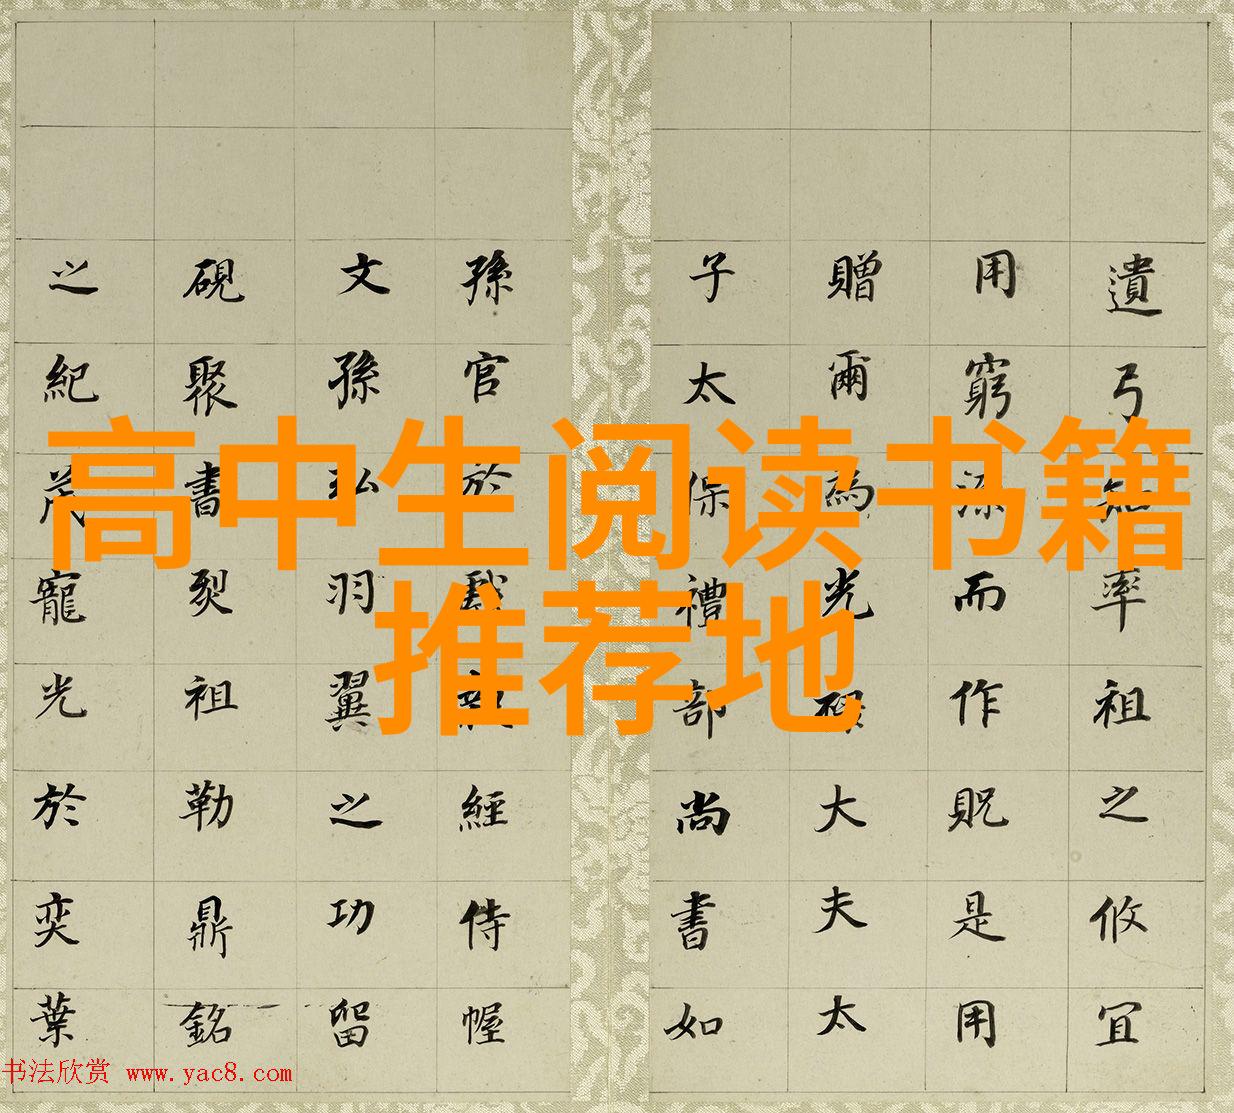 高中生阅读书籍
推荐地
遺弓知率祖之攸宜
用窮源而作貺是用
贈爾為光祿大夫太
子太保禮部尚書如
孫官於戲經侍幄
文孫弘羽翼之功留
硯聚書裂祖勒鼎銘
之紀茂寵光於奕葉
书法欣赏 www.yac8.com